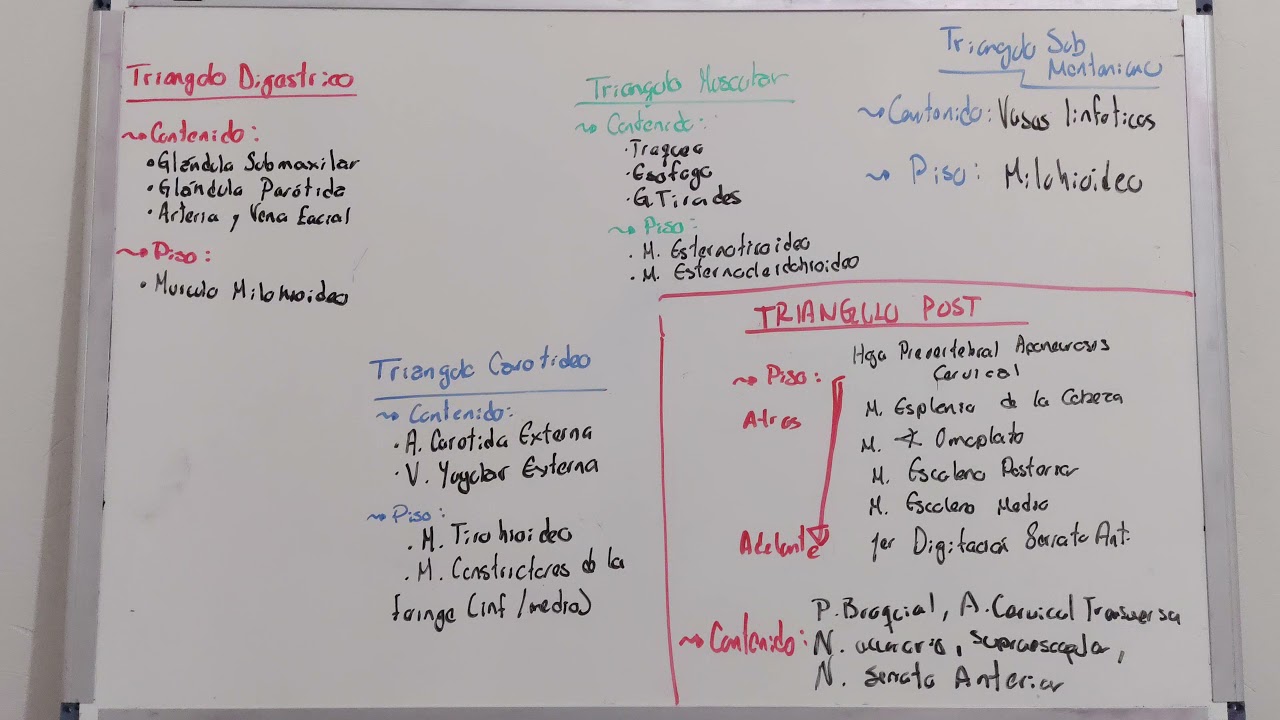 Triangulo Digastrico
Contenido:
• Glándula Submaxilar
• Glándula Parótida
• Arteria y Vena Facial
Piso:
• Musculo Milohioideo
Triangulo Muscular
Contenido:
• Traquea
• Esófago
• G Tiroides
Piso:
• M. Esternotiroideo
• M. Esternocleidohioideo
Triangulo Sub
Mentoniano
Contonido: Vasos linfaticos
Piso: Milohioideo
Triangulo Carotideo
Contenido:
• A. Carotida Externa
• V. Yugular Externa
Piso:
• M. Tirohioideo
• M. Constrictores de la
faringe (inf/medio)
TRIANGULO POST
Piso: Hoja Prevertebral Aponeurosis
Cervical
Atras
M. Esplenio de la Cabeza
M. Omoplato
M. Escaleno Posterior
M. Escaleno Medio
Adelante 1er Digitación Serrato Ant.
Contenido: P. Braquial, A. Cervical Transversa
N. accesorio, supraescapular,
N. Serrato Anterior